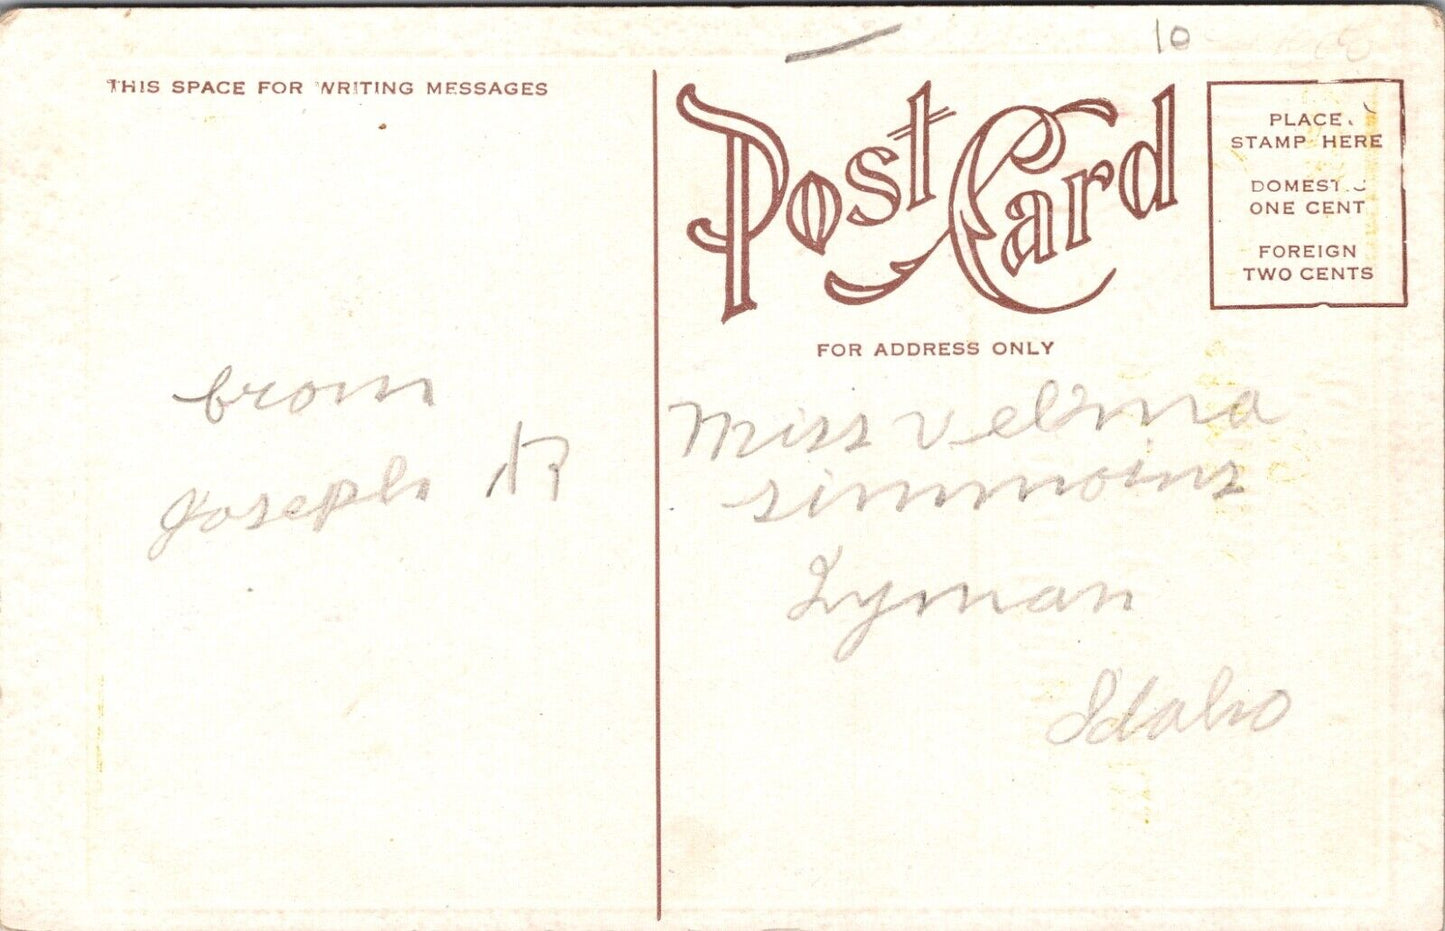 THIS SPACE FOR WRITING MESSAGES
10
Post Card
PLACE
STAMP HERE
DOMESTIC
ONE CENT
FOREIGN
TWO CENTS
FOR ADDRESS ONLY
from
Joseph R
Miss Velma
simmoins
Lyman
Idaho